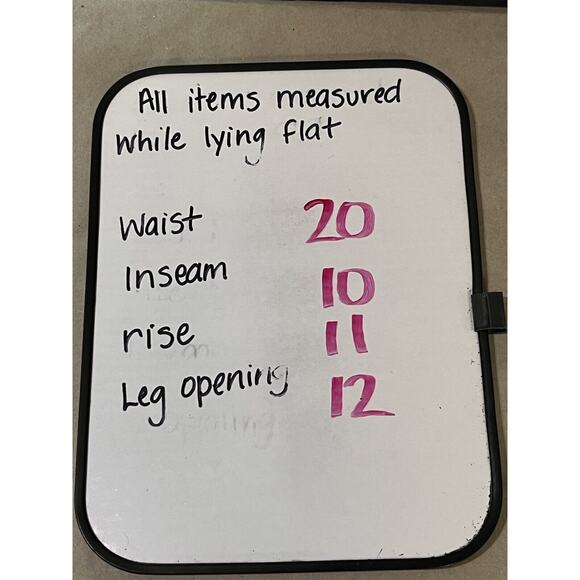 All items measured
while lying flat
Waist 20
Inseam 10
rise 11
Leg opening 12